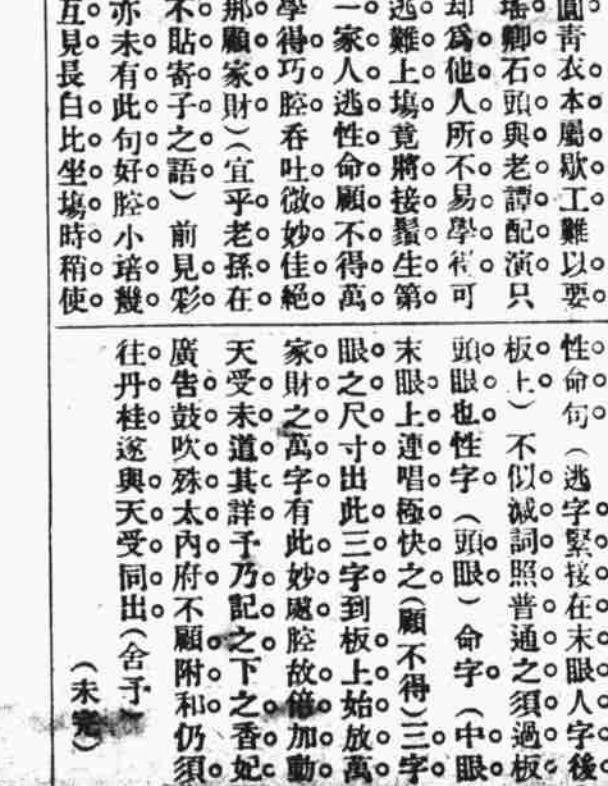 圓靑衣本屬歇工難以要
瑤卿石頭與老譚配演只
却爲他人所不易學得可
逃難上塲竟將接鬚生第
一家人逃性命顧不得萬
學得巧腔吞吐微妙佳絕
那顧家財）（宜乎老孫在
不貼寄子之語）前見彩
亦未有此句好腔小培幾
互見長白比坐塲時稍使
性命句（逃字緊接在末眼人字後
板上）不似減詞照普通之須過板
頭眼也性字（頭眼）命字（中眼
末眼上連唱極快之（顧不得）三字
眼之尺寸出此三字到板上始放萬
家財之萬字有此妙腔故倍加動
天受未道其詳予乃記之下之香妃
廣告鼓吹殊太內府不顧附和仍須
往丹桂遂與天受同出（舍予）
（未完）